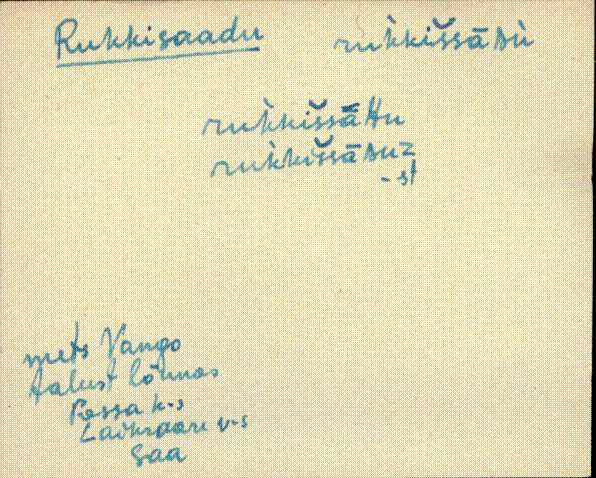 Rukkisaadu rùkkiššāᴅù
rùkkiššāttu
rùkkiššāᴅuz
-st
mets Vango
talust lõunas
Possa k-s
Laiksaare v-s
Saa